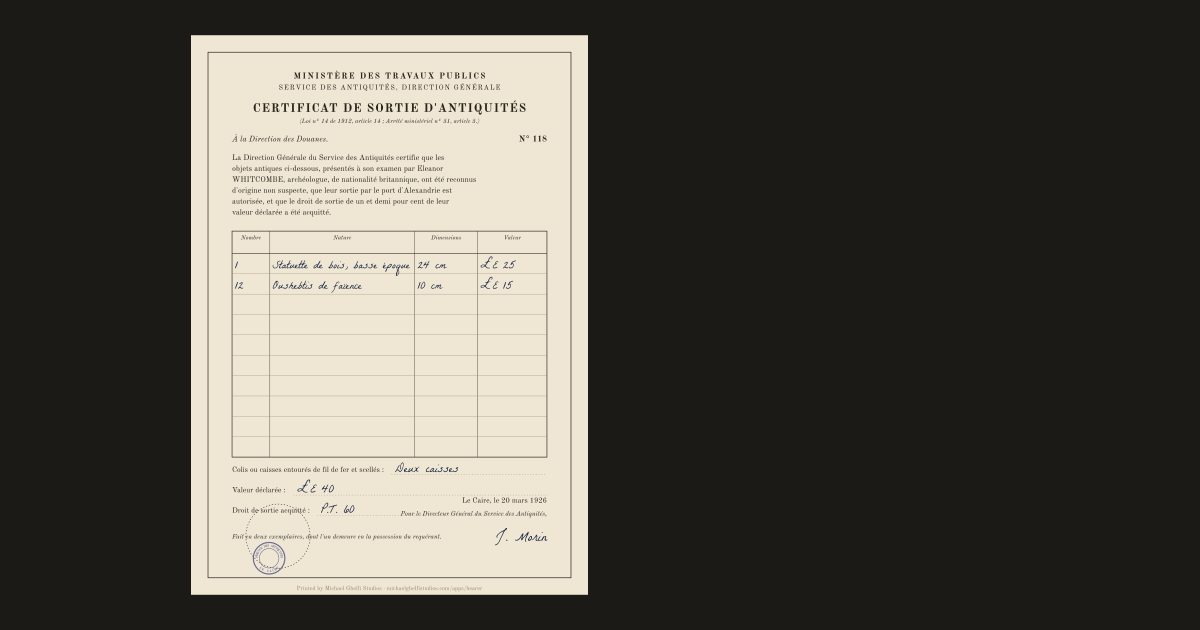 MINISTÈRE DES TRAVAUX PUBLICS
SERVICE DES ANTIQUITÉS, DIRECTION GÉNÉRALE
CERTIFICAT DE SORTIE D'ANTIQUITÉS
(Loi n° 14 de 1912, article 14 ; Arrêté ministériel n° 51, article 5.)
À la Direction des Douanes.
N° 118
La Direction Générale du Service des Antiquités certifie que les
objets antiques ci-dessous, présentés à son examen par Eleanor
WHITCOMBE, archéologue, de nationalité britannique, ont été reconnus
d'origine non suspecte, que leur sortie par le port d'Alexandrie est
autorisée, et que le droit de sortie de un et demi pour cent de leur
valeur déclarée a été acquitté.
Nombre Nature Dimensions Valeur
1 Statuette de bois, basse époque 24 cm £E 25
12 Oushebtis de faïence 10 cm £E 15
Colis ou caisses entourés de fil de fer et scellés : Deux caisses
Valeur déclarée : £E 40
Le Caire, le 20 mars 1926
Droit de sortie acquitté : P.T. 60
Pour le Directeur Général du Service des Antiquités,
Fait en deux exemplaires, dont l'un demeure en la possession du requérant.
J. Morin
Printed by Michael Ghelfi Studios · michaelghelfistudios.com/apps/bearer